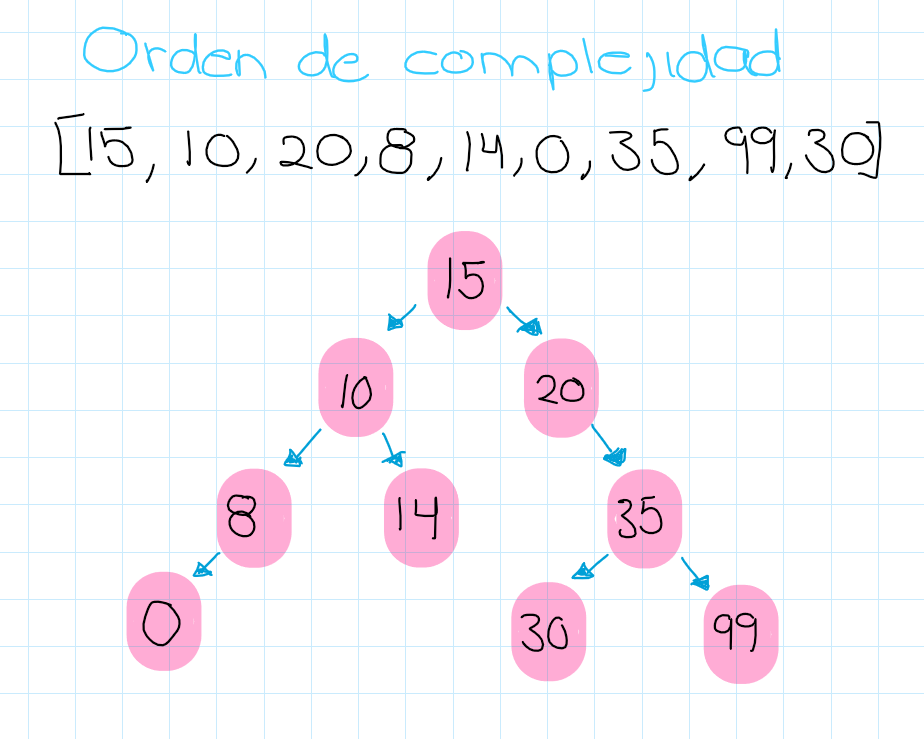 Orden de complejidad
[15, 10, 20, 8, 14, 0, 35, 99, 30]
15
10 20
8 14 35
0 30 99